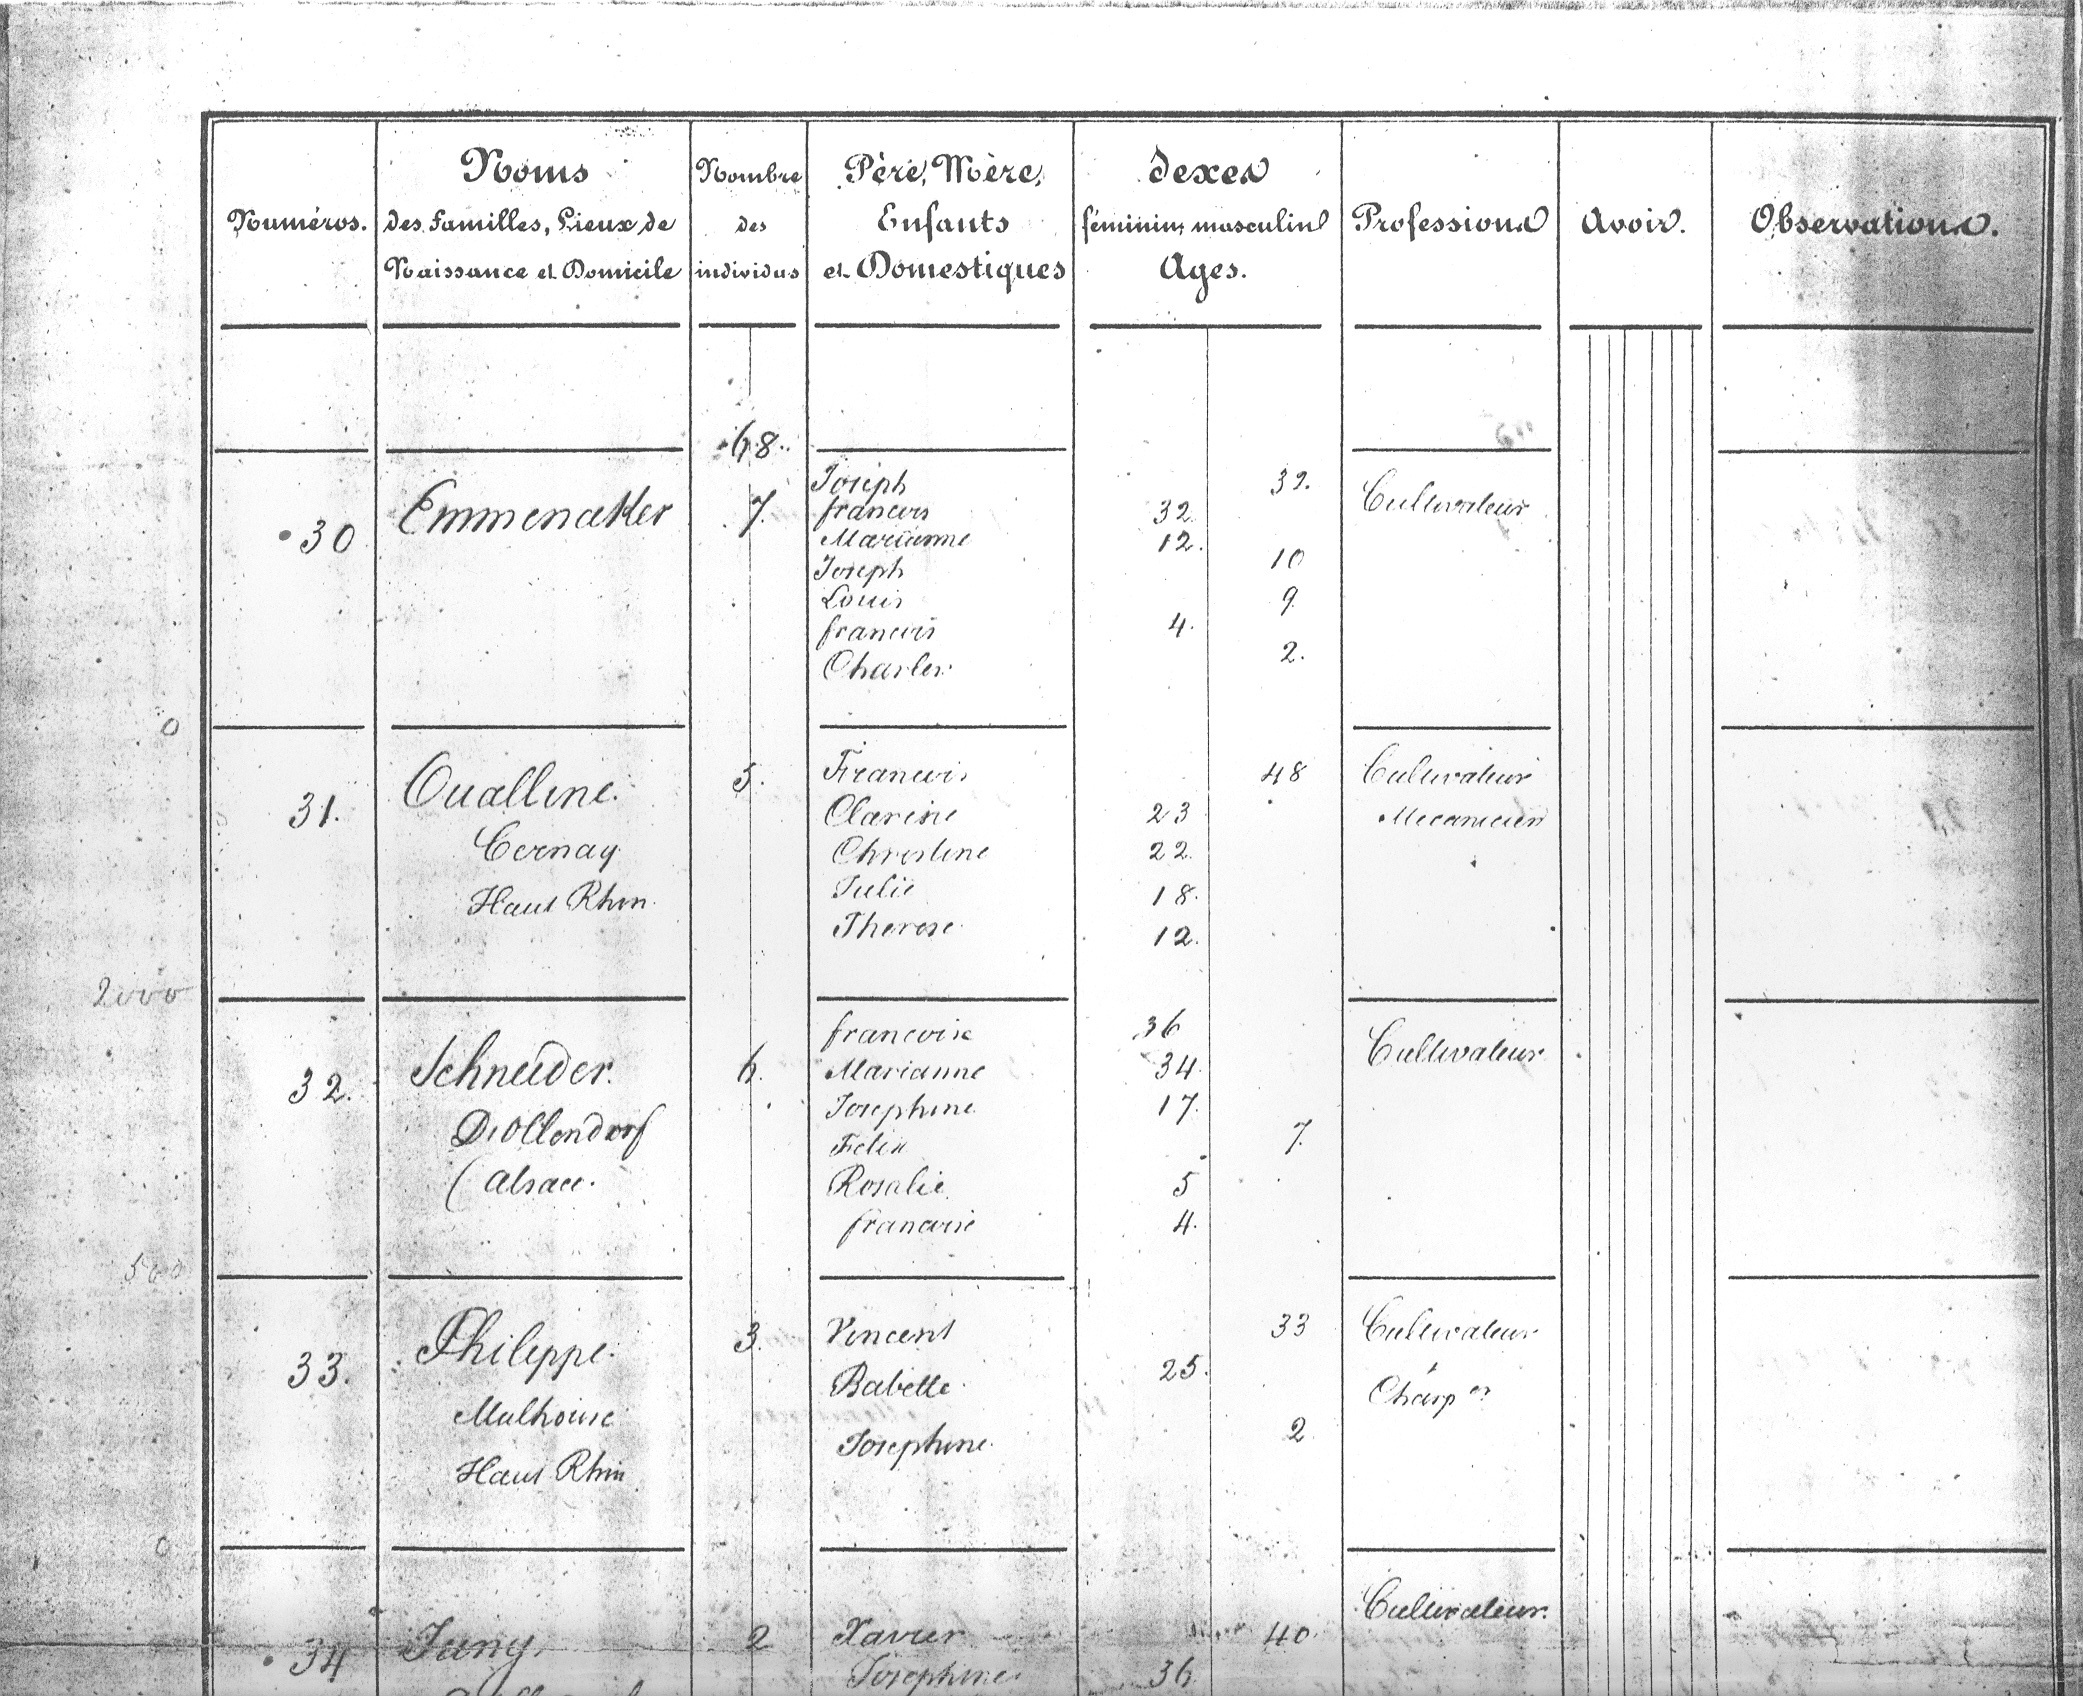 Numéros.
Noms
des familles, Lieux de
Naissance et Domicile
Nombre
des
individus
Père, Mère,
Enfants
et Domestiques
Sexes
féminin, masculin
Ages.
Professions
Avoir.
Observations.
68.
30 Emmenaker 7. Joseph 32. Cultivateur
francois 32
Marianne 12.
Joseph 10
Louis 9.
francois 4.
Charles 2.
0
31. Oualline. 5. Francois 48 Cultivateur
Clarise 23 Mecanicien
Cernay Christine 22
Haut Rhin Julie 18.
Therese 12.
2000
32. Schneider. 6. francoise 36 Cultivateur
Marianne 34.
Drollendorf Josephine 17.
Felix 7.
(Alsace. Rosalie 5
francoise 4.
500
33. Philippe. 3. Vincent 33 Cultivateur
Babette 25. Charp er
Mulhouse Josephine 2
Haut Rhin
0
34 Jung. 2 Xavier 40. Cultivateur.
Josephine 36